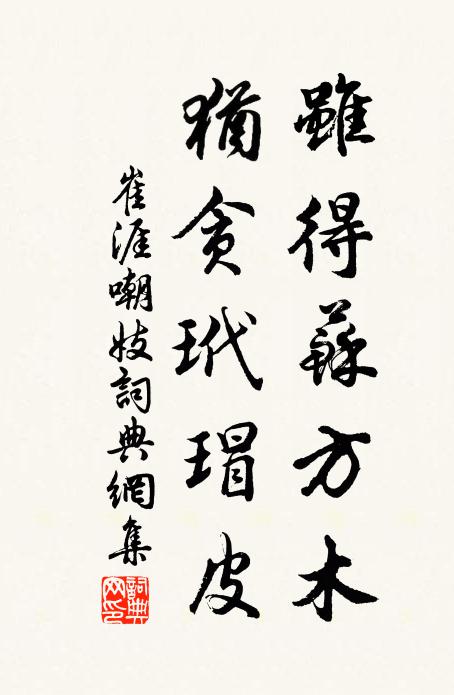 雖得蘇方木
猶貪玳瑁皮
崔涯嘲妓詞典網集
詞典网印